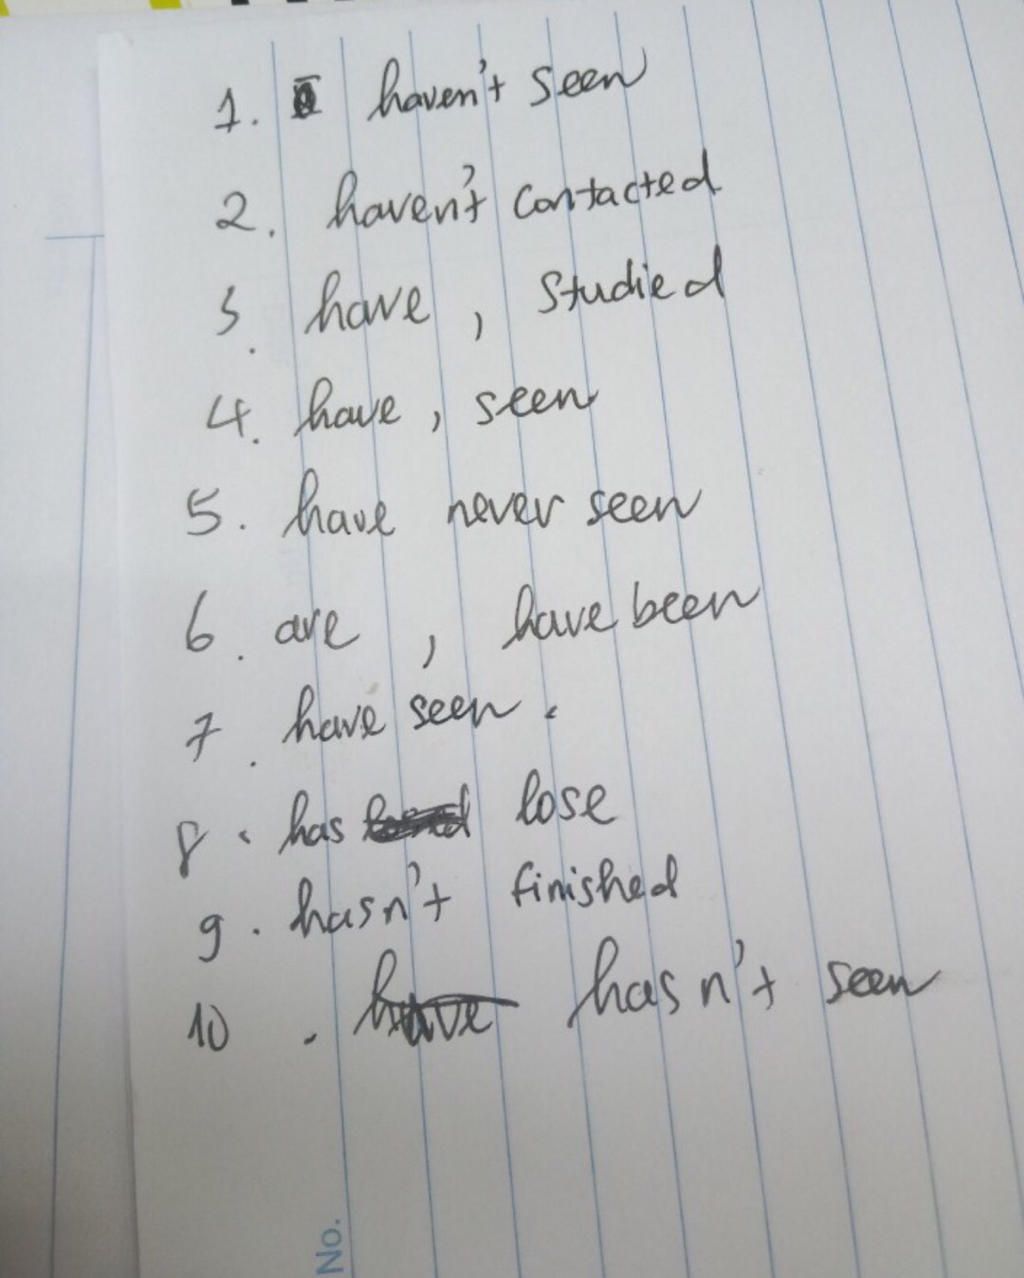 1. haven't seen
2. haven't contacted
3. have, studied
4. have, seen
5. have never seen
6. are, have been
7. have seen.
8. has lose
9. hasn't finished
10. have hasn't seen
No.